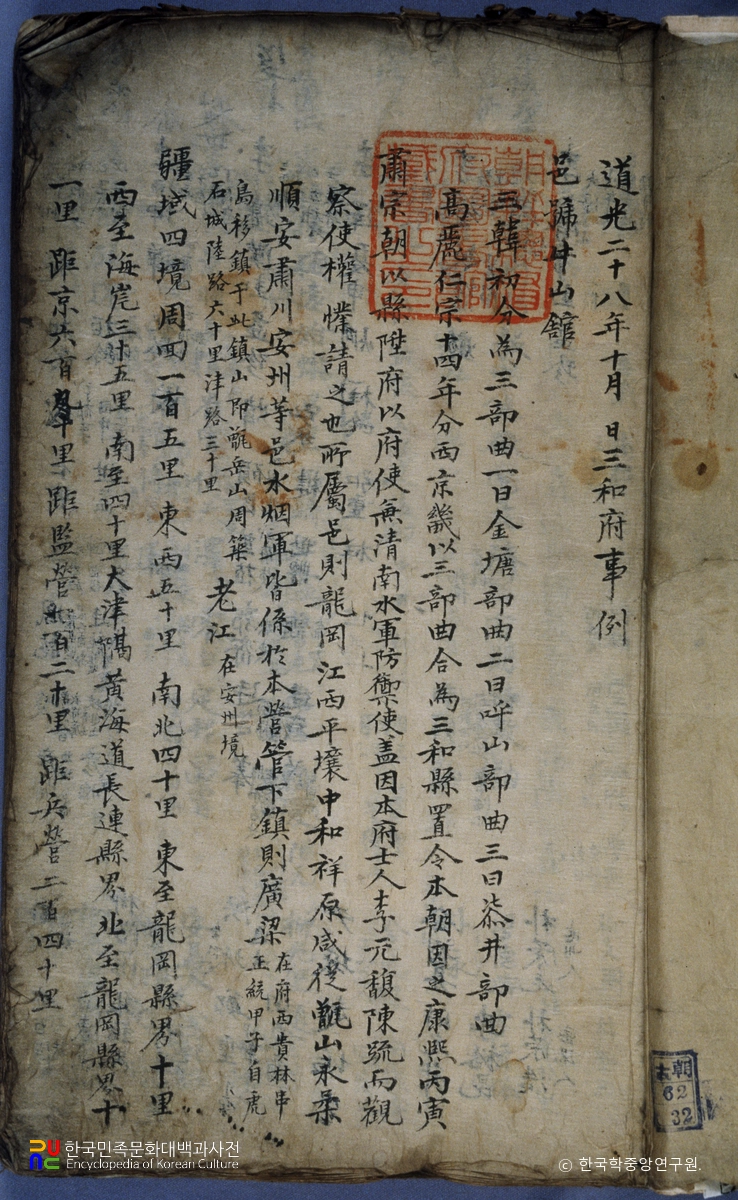 道光二十八年十月 日三和府事例
邑號牛山館
三韓初分為三部曲一曰金塘部曲二曰呼山部曲三曰漆井部曲
高麗仁宗十四年分西京畿以三部曲合為三和縣置令本朝因之康熙丙寅
肅宗朝以縣陞府以府使兼清南水軍防禦使盖因本府士人李元馥陳疏而觀
察使權 愫請之也所屬邑則龍岡江西平壤中和祥原咸從甑山永柔
順安肅川安州等邑水烟軍皆係於本營管下鎮則廣梁 在府西貴林串
正統甲子自虎
島移鎮于此鎮山即甑岳山周築
石城陸路六十里津路三十里
老江 在安州境
疆域四境周回一百五里 東西五十里 南北四十里 東至龍岡縣界十里
西至海岸三十五里 南至四十里大津隔黃海道長連縣界北至龍岡縣界十
一里 距京六百九十里 距監營一百二十里 距兵營二百四十里
朝
古
62
32
한국민족문화대백과사전
Encyclopedia of Korean Culture
© 한국학중앙연구원.